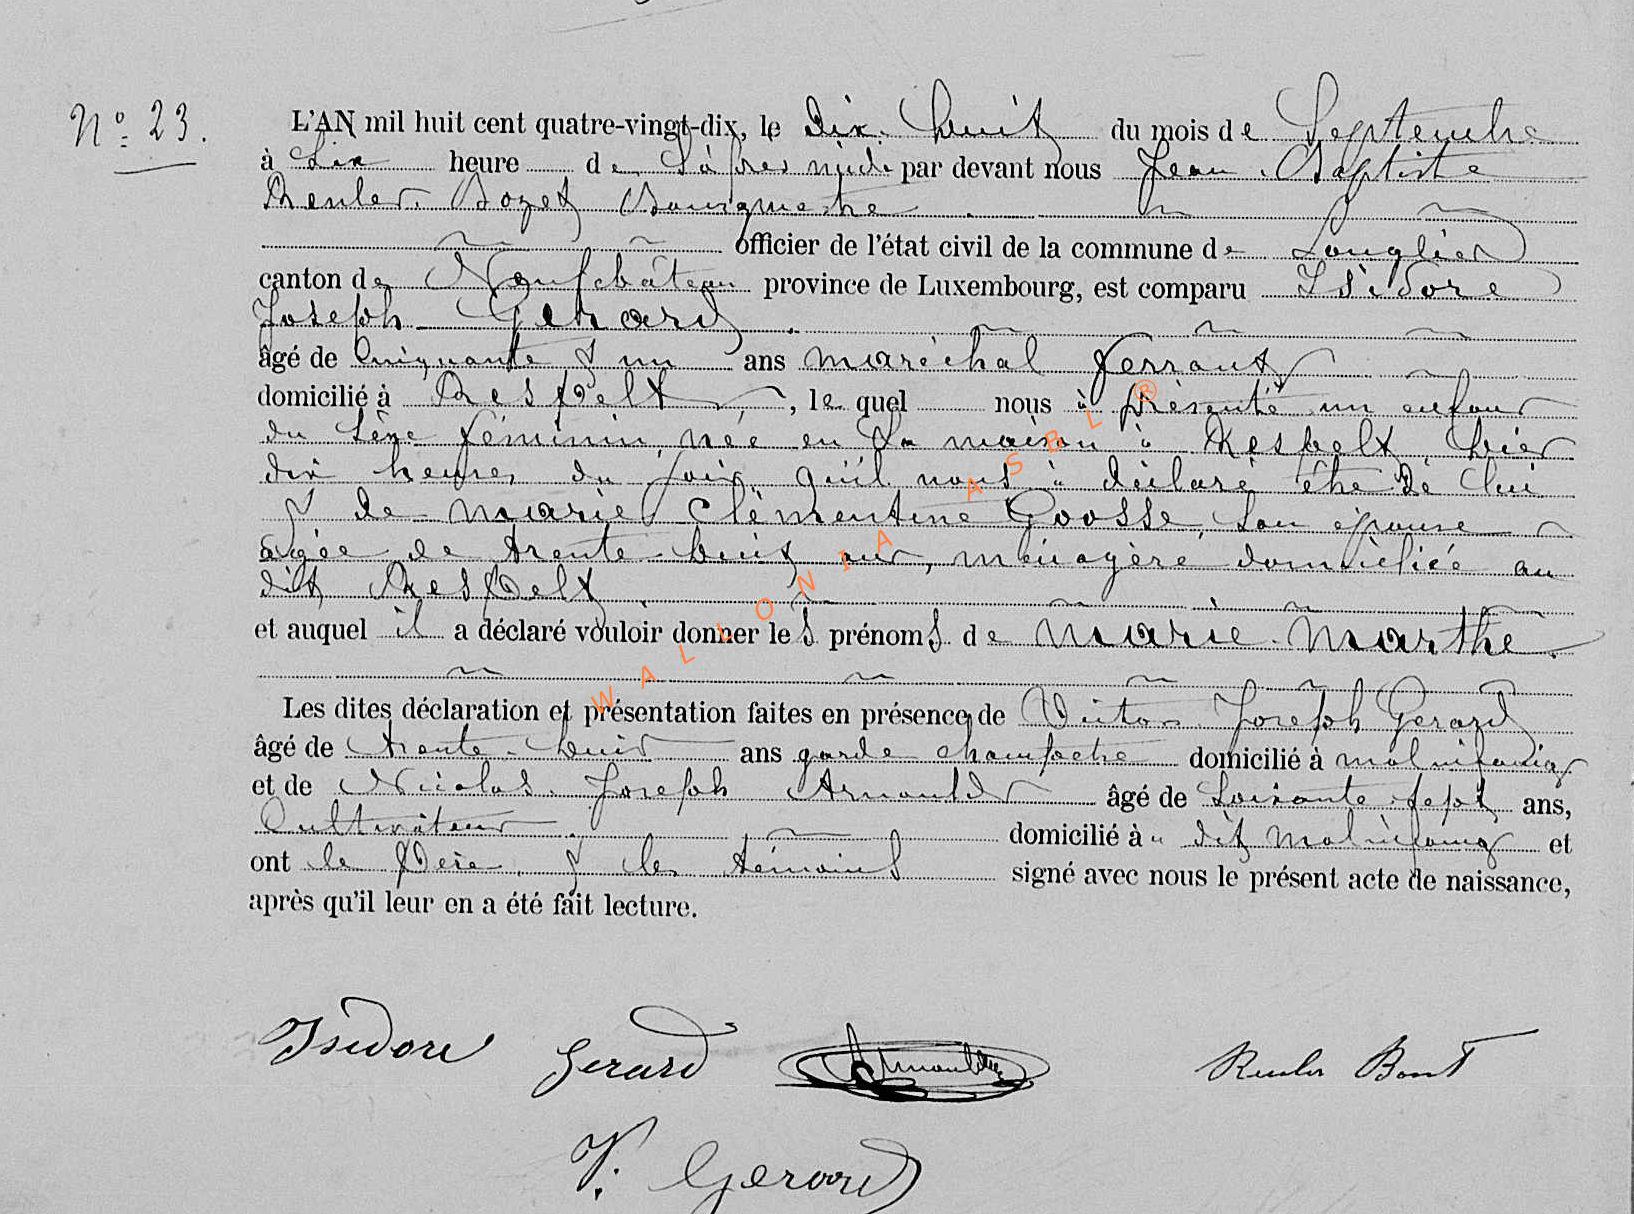 N° 23.
L'AN mil huit cent quatre-vingt-dix, le dix-huit du mois de Septembre
à six heure de l'après midi par devant nous Jean-Baptiste
Renler-Bozet Bourgmestre
officier de l'état civil de la commune de Longlier
canton de Neufchâteau province de Luxembourg, est comparu Isidore
Joseph Gerard
âgé de Cinquante & un ans maréchal ferrant
domicilié à Respelt, le quel nous à présenté un enfant
du sèxe féminin, née en sa maison à Respelt, hier
dix heures du soir, qu'il nous à déclaré être de lui
& de Marie Clémentine Goosse son épouse
agée de trente-huit ans, ménagère, domiciliée au
dit Respelt
et auquel il a déclaré vouloir donner les prénoms de Marie-Marthe.
Les dites déclaration et présentation faites en présence de Victor Joseph Gerard
âgé de trente-huit ans garde champêtre domicilié à Molinfaing
et de Nicolas-Joseph Arnould âgé de soixante-sept ans,
Cultivateur domicilié à dit Molinfaing et
ont le Père & les témoins signé avec nous le présent acte de naissance,
après qu'il leur en a été fait lecture.
Isidore Gerard Arnould
V. Gerard
WALLONIA ASBL ®